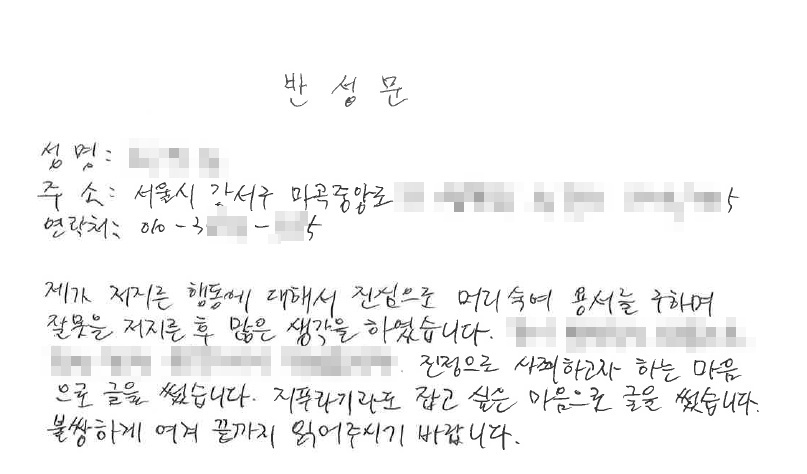 반성문
성명:
주소: 서울시 강서구 마곡중앙로 5
연락처: 010-3 - 5
제가 저지른 행동에 대해서 진심으로 머리숙여 용서를 구하며
잘못을 저지른 후 많은 생각을 하였습니다.
진정으로 사죄하고자 하는 마음
으로 글을 썼습니다. 지푸라기라도 잡고 싶은 마음으로 글을 썼습니다.
불쌍하게 여겨 끝까지 읽어주시기 바랍니다.